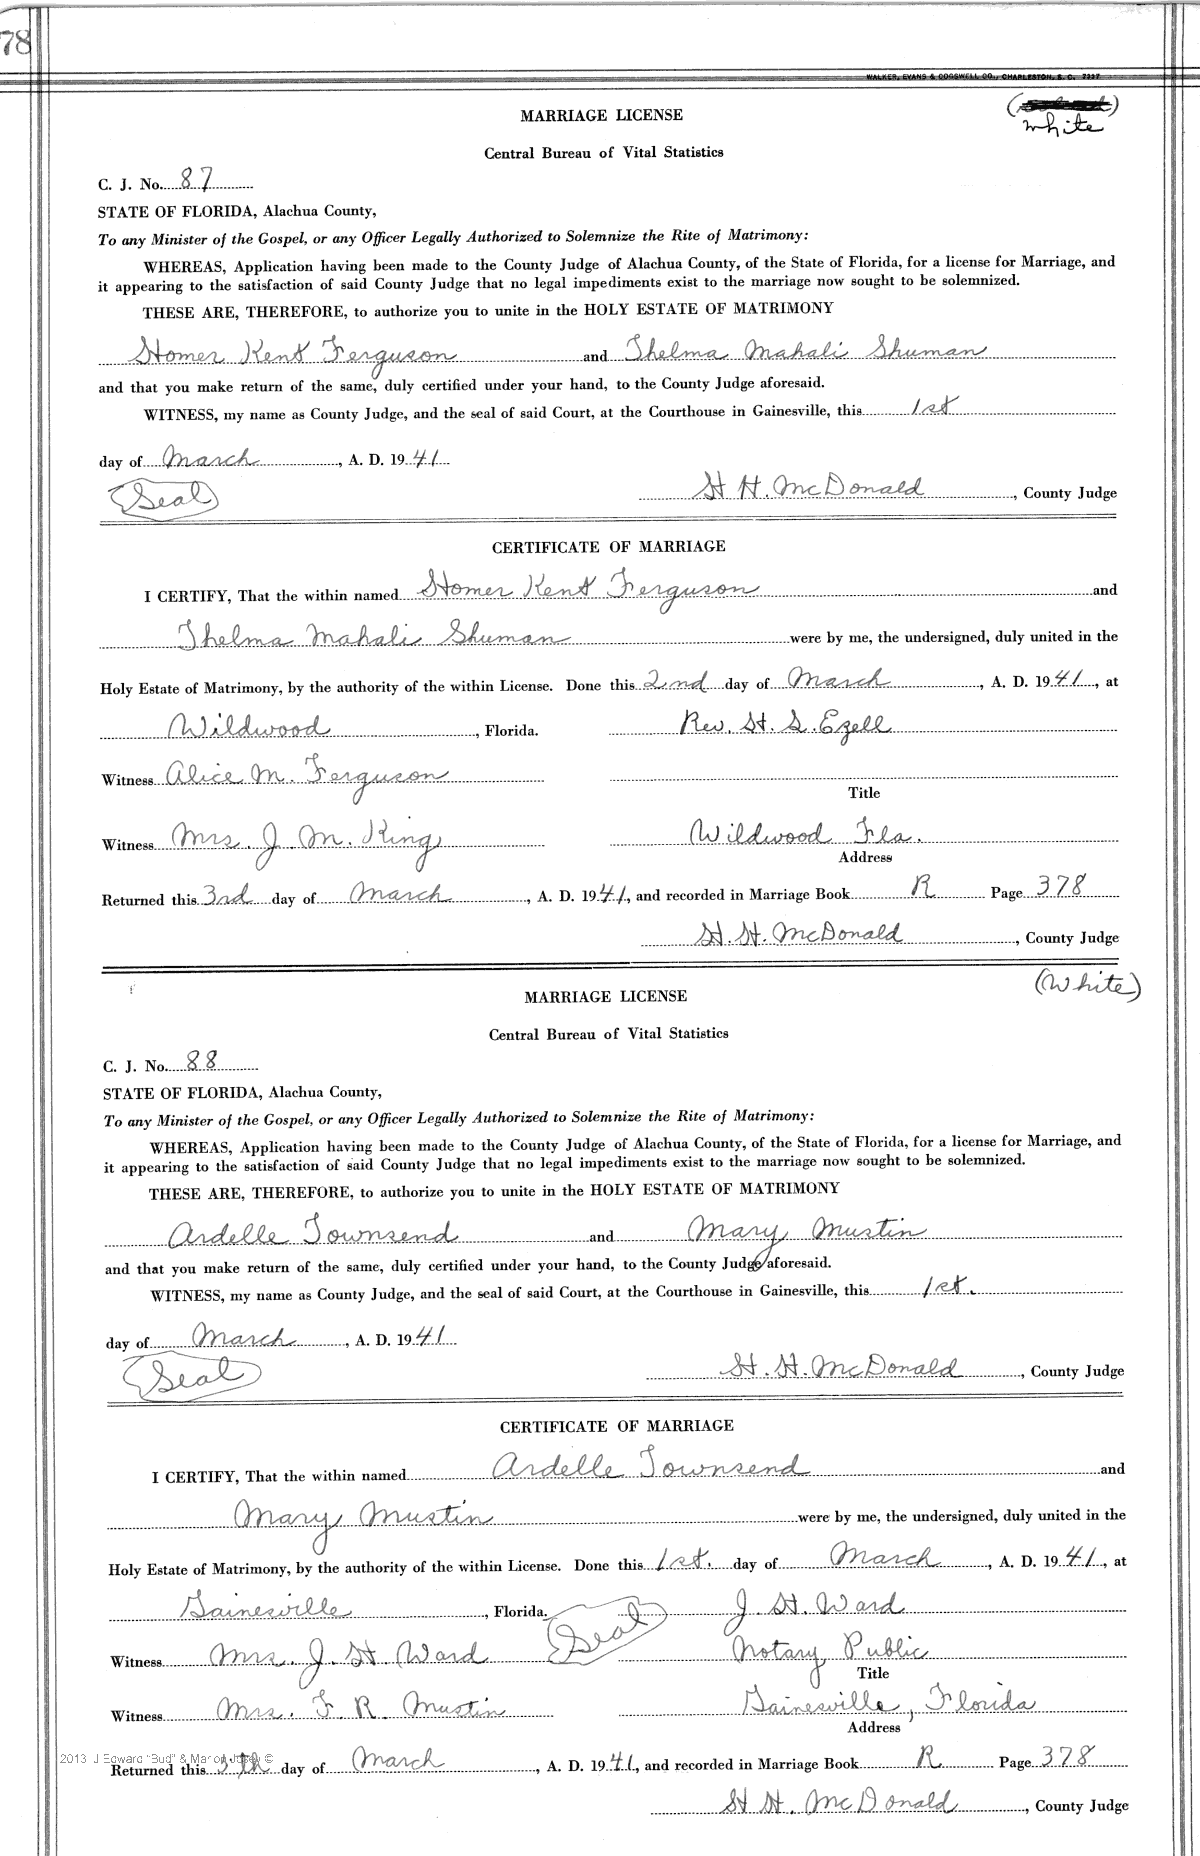 78
WALKER, EVANS & COGSWELL CO., CHARLESTON, S. C. 7327
MARRIAGE LICENSE
white
Central Bureau of Vital Statistics
C. J. No. 87
STATE OF FLORIDA, Alachua County,
To any Minister of the Gospel, or any Officer Legally Authorized to Solemnize the Rite of Matrimony:
WHEREAS, Application having been made to the County Judge of Alachua County, of the State of Florida, for a license for Marriage, and
it appearing to the satisfaction of said County Judge that no legal impediments exist to the marriage now sought to be solemnized.
THESE ARE, THEREFORE, to authorize you to unite in the HOLY ESTATE OF MATRIMONY
Homer Kent Ferguson and Thelma Mahali Shuman
and that you make return of the same, duly certified under your hand, to the County Judge aforesaid.
WITNESS, my name as County Judge, and the seal of said Court, at the Courthouse in Gainesville, this 1st
day of March, A. D. 1941
Seal
H H. McDonald, County Judge
CERTIFICATE OF MARRIAGE
I CERTIFY, That the within named Homer Kent Ferguson and
Thelma Mahali Shuman were by me, the undersigned, duly united in the
Holy Estate of Matrimony, by the authority of the within License. Done this 2nd day of March, A. D. 1941, at
Wildwood, Florida. Rev. H. S. Ezell
Witness Alice M. Ferguson
Title
Witness Mrs. J. M. King Wildwood Fla.
Address
Returned this 3rd day of March, A. D. 1941, and recorded in Marriage Book R Page 378
H. H. McDonald, County Judge
(White)
MARRIAGE LICENSE
Central Bureau of Vital Statistics
C. J. No. 88
STATE OF FLORIDA, Alachua County,
To any Minister of the Gospel, or any Officer Legally Authorized to Solemnize the Rite of Matrimony:
WHEREAS, Application having been made to the County Judge of Alachua County, of the State of Florida, for a license for Marriage, and
it appearing to the satisfaction of said County Judge that no legal impediments exist to the marriage now sought to be solemnized.
THESE ARE, THEREFORE, to authorize you to unite in the HOLY ESTATE OF MATRIMONY
Ardelle Townsend and Mary Mustin
and that you make return of the same, duly certified under your hand, to the County Judge aforesaid.
WITNESS, my name as County Judge, and the seal of said Court, at the Courthouse in Gainesville, this 1st.
day of March, A. D. 1941
Seal
H. H. McDonald, County Judge
CERTIFICATE OF MARRIAGE
I CERTIFY, That the within named Ardelle Townsend and
Mary Mustin were by me, the undersigned, duly united in the
Holy Estate of Matrimony, by the authority of the within License. Done this 1st. day of March, A. D. 1941, at
Gainesville, Florida. Seal J. H. Ward
Witness Mrs. J. H Ward Notary Public
Title
Witness Mrs. F. R. Mustin Gainesville, Florida
Address
2013 J Edward "Bud" & Marion ©
Returned this day of March, A. D. 1941, and recorded in Marriage Book R Page 378
H H. McDonald, County Judge